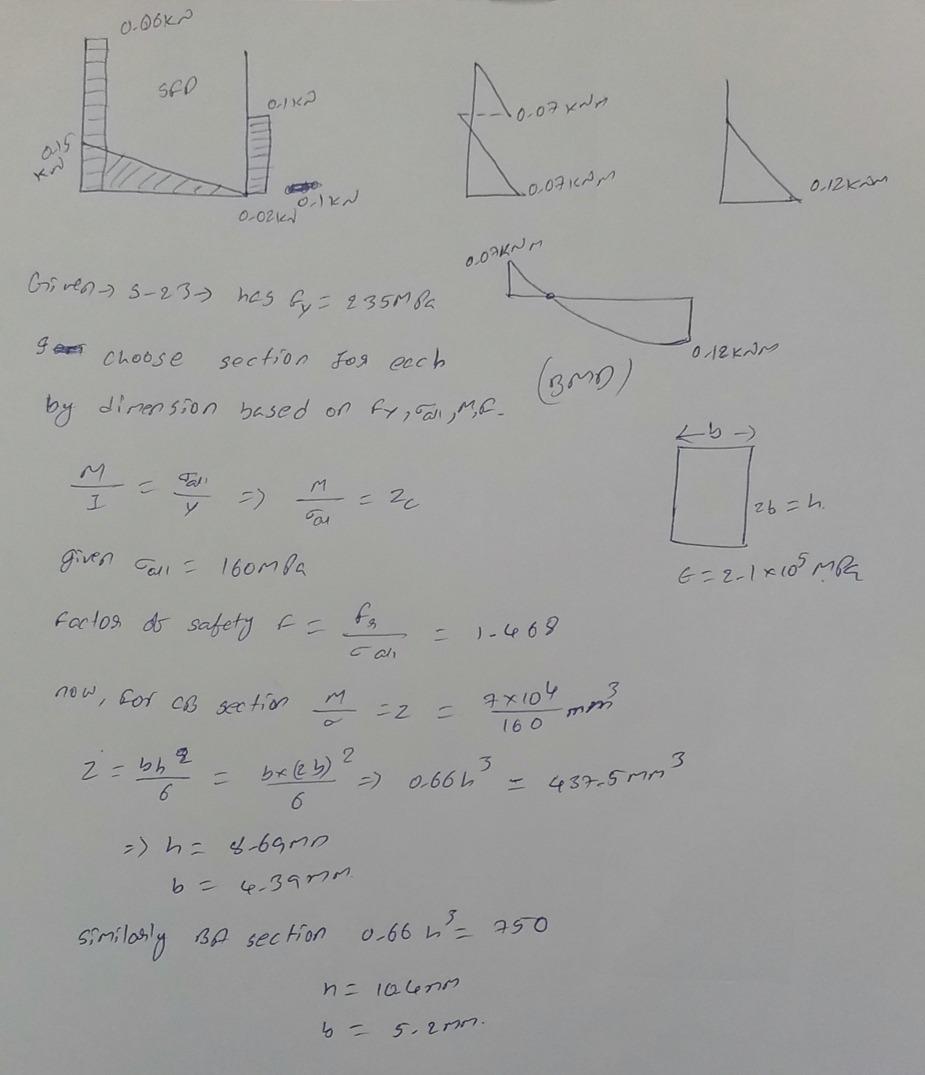 0.06KN
SFD
0.1KN
0.15
KN
0.1KN
0.02KN
0.07KNM
0.07KNM
0.12KNM
0.07KNM
0.12KNM
(BMD)
Given → S-23 → has fy = 235MPa
choose section for each
by dimension based on fy, σall, M, E.
M/I = σall/y => M/σall = Zc
← b →
2b = h
E = 2.1 × 10^5 MPa
given σall = 160MPa
factor of safety F = fy/σall = 1.468
now, for CB section M/σ = Z = 7×10^4/160 mm^3
Z = bh^2/6 = b×(2b)^2/6 => 0.66h^3 = 437.5mm^3
=> h = 8.69mm
b = 4.39mm
similarly BA section 0.66h^3 = 750
h = 10.4mm
b = 5.2mm.